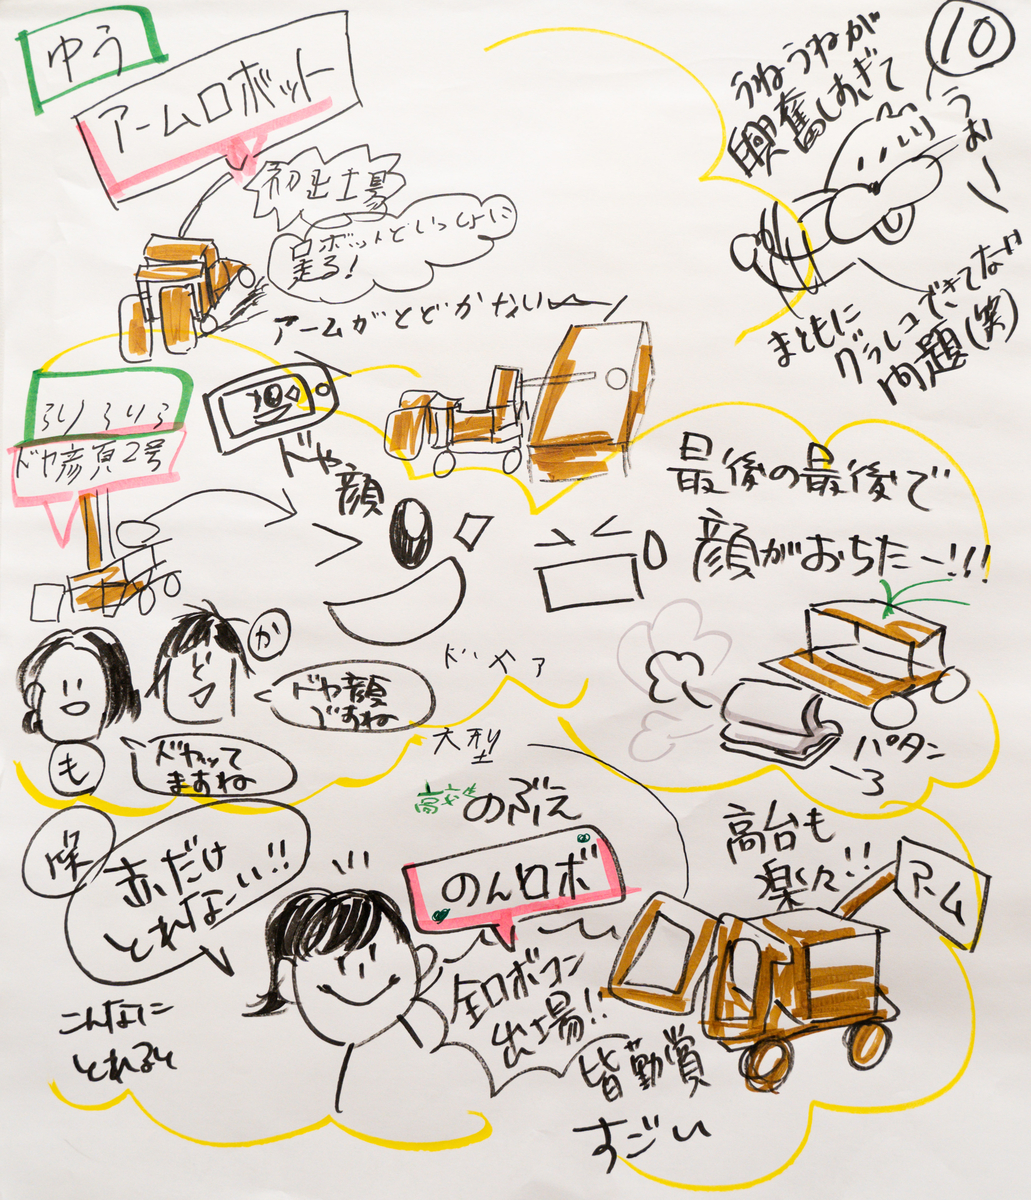 ゆう
アームロボット
初出場
ロボットといっしょに
走る!
アームがとどかない
10
うねうねが
興奮しすぎて
うおー
まともに
グラレコできてない
問題(笑)
ろりろり3
ドヤ彦
2号
ドヤ
顔
ドヤァ
最後の最後で
顔がおちたー!!!
パタン
ーろ
か
ドヤ顔
ですね
も
ドヤッて
ますね
大型
高専
のぶえ
のんロボ
全ロボコン
出場!!
皆勤賞
すごい
高台も
楽々!!
アーム
とれなーい!!
こんなに
とれると